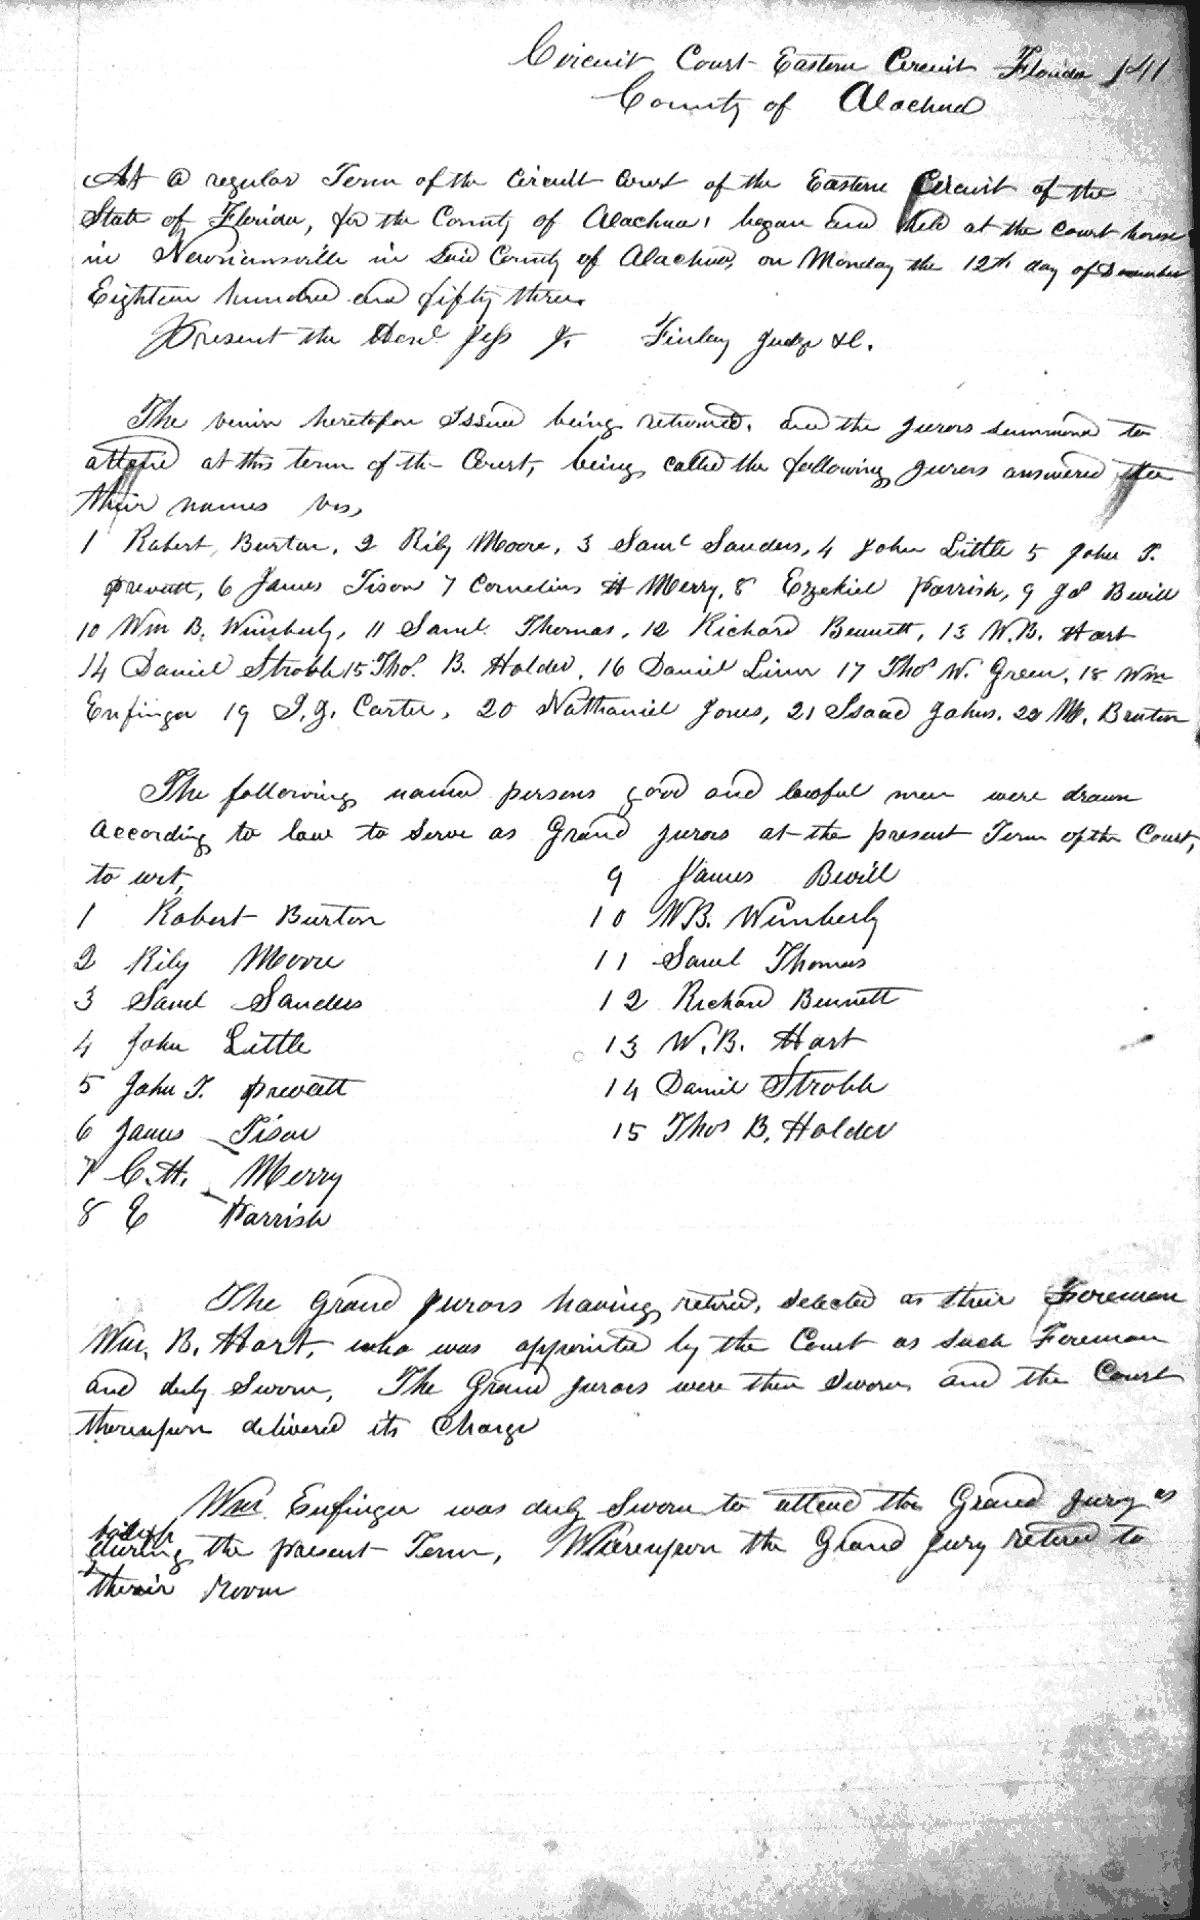 Circuit Court Eastern Circuit Florida 141
County of Alachua
At a regular Term of the Circuit Court of the Eastern Circuit of the
State of Florida, for the County of Alachua, began and held at the court house
in Newnansville in said County of Alachua, on Monday the 12th day of December
Eighteen hundred and fifty three.
Present the Honl Jess J. Finley Judge &c.
The venire heretofore Issued being returned, and the jurors summond to
attend at this term of the Court, being called the following jurors answered to
their names viz,
1 Robert Burton, 2 Rily Moore, 3 Saml Sanders, 4 John Little 5 John T.
Prevatt, 6 James Tison 7 Cornelius H Merry, 8 Ezekiel Parrish, 9 Jas Bevill
10 Wm B. Wimberly, 11 Saml. Thomas, 12 Richard Bennett, 13 W.B. Hart
14 Daniel Strobh 15 Thos. B. Holder, 16 Daniel Linn 17 Thos W. Green, 18 Wm
Enfinger 19 J. J. Carter, 20 Nathaniel Jones, 21 Isaac Johns. 22 M. Bruton
The following named persons good and lawful men were drawn
According to law to serve as Grand jurors at the present Term of the Court,
to wit,
1 Robert Burton
2 Rily Moore
3 Saml Sanders
4 John Little
5 John T. Prevatt
6 James Tison
7 C. H. Merry
8 E Parrish
9 James Bevill
10 W B. Wimberly
11 Saml Thomas
12 Richard Bennett
13 W. B. Hart
14 Daniel Strobh
15 Thos B. Holder
The Grand Jurors having retired, selected as their Foreman
Wm. B. Hart, who was appointed by the Court as such Foreman
and duly Sworn, The Grand jurors were then sworn and the Court
thereupon delivered its Charge
Wm. Enfinger was duly Sworn to attend the Grand jury as
bailiff
during the present Term, Whereupon the Grand Jury retired to
their room